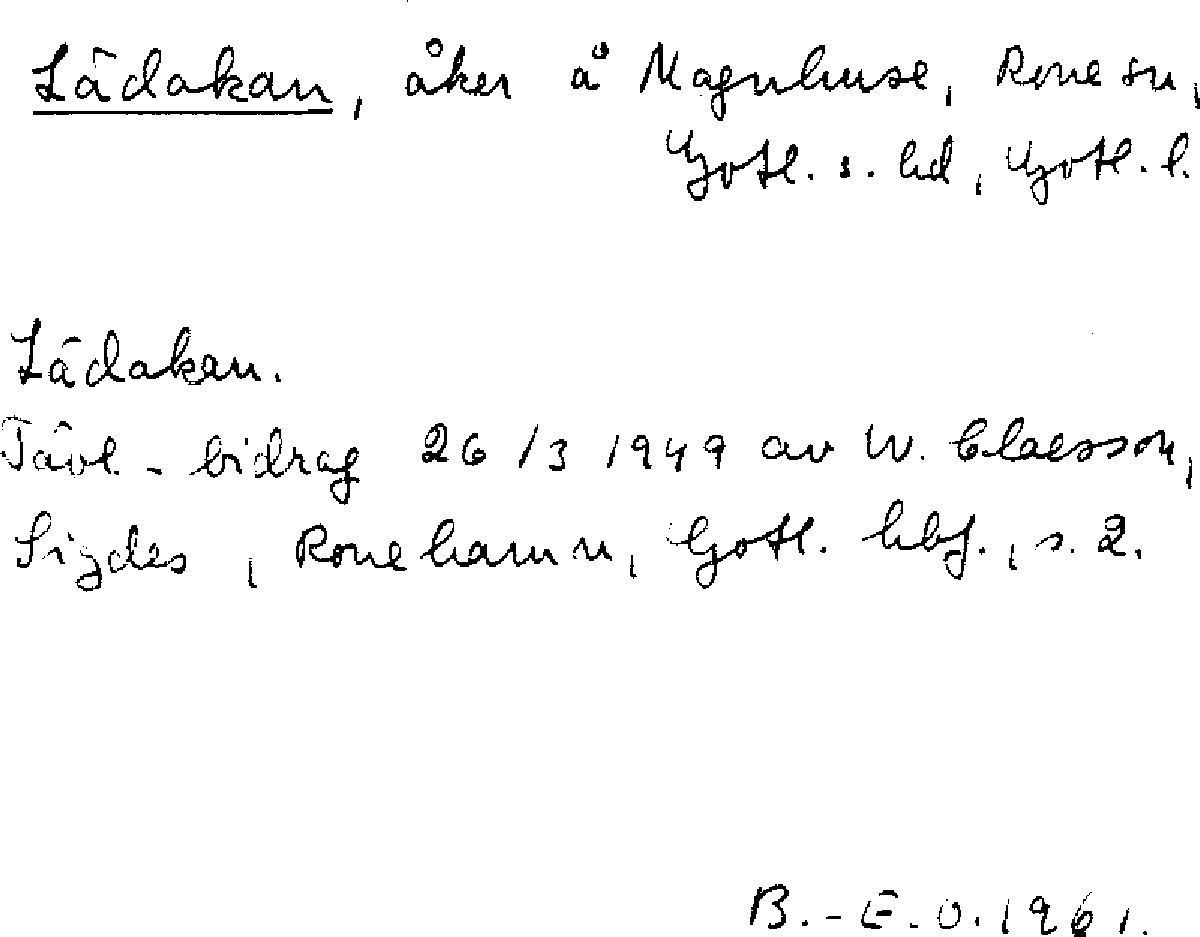 Lädakan, åker å Magnhuse, Rone sn,
Gotl. s. hd, Gotl. l.
Lädakan.
Tävl.-bidrag 26/3 1949 av W. Claesson,
Sigdes, Ronehamn, Gotl. hbf., s. 2.
B.-E.O. 1961.